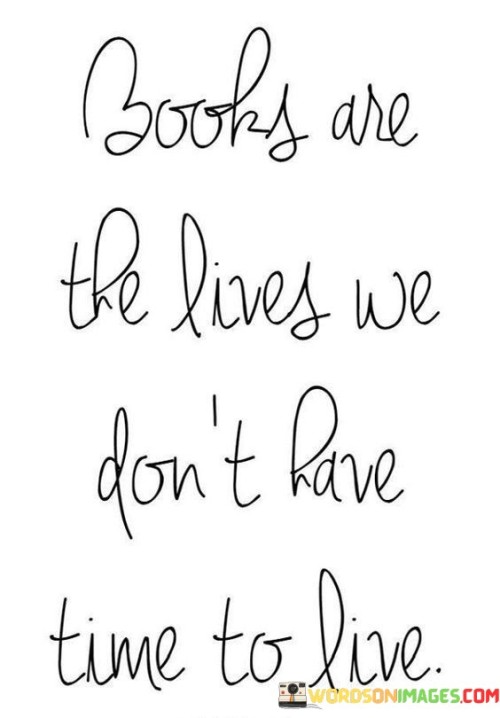 Books are
the lives we
don't have
time to live.
WORDSONIMAGES.COM